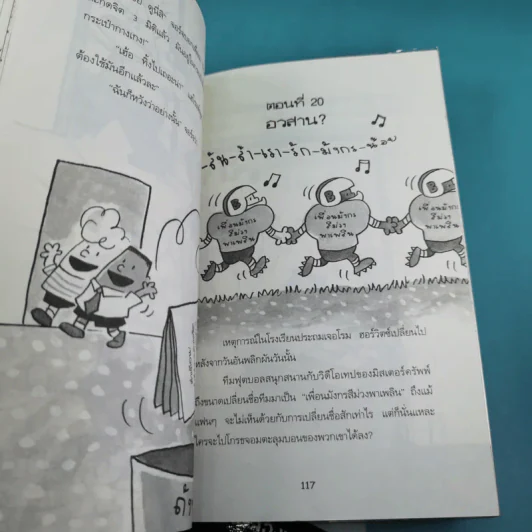 3 มิติแล้ว
กระเป๋ากางเกง!"
ต้องใช้มันอีกแล้วละ"
"ฉันก็หวังว่าอย่างนั้น"
ตอนที่ 20
อวสาน?
รัก-มังกร-น้อย
B
B
เพื่อนมังกร
สีม่วง
พาเพลิน
เพื่อนมังกร
สีม่วง
พาเพลิน
เพื่อนมังกร
สีม่วง
พาเพลิน
เหตุการณ์ในโรงเรียนประถมเจอโรม ฮอร์วิตซ์เปลี่ยนไป
หลังจากวันอันพลิกผันวันนั้น
ทีมฟุตบอลสนุกสนานกับวิดีโอเทปของมิสเตอร์ครัพพ์
ถึงขนาดเปลี่ยนชื่อทีมมาเป็น "เพื่อนมังกรสีม่วงพาเพลิน" ถึงแม้
แฟนๆ จะไม่เห็นด้วยกับการเปลี่ยนชื่อสักเท่าไร แต่ก็นั่นแหละ
ใครจะไปโกรธจอมตะลุมบอนของพวกเขาได้ลง?
117